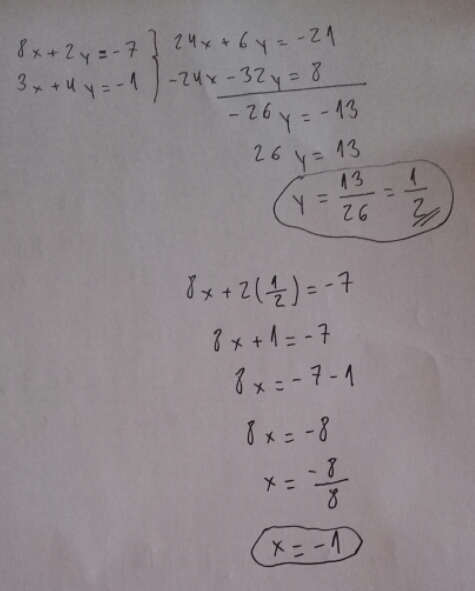 8x + 2y = -7 } 24x + 6y = -21
3x + 4y = -1 } -24x - 32y = 8
-26y = -13
26y = 13
y = 13/26 = 1/2
8x + 2(1/2) = -7
8x + 1 = -7
8x = -7 - 1
8x = -8
x = -8/8
x = -1